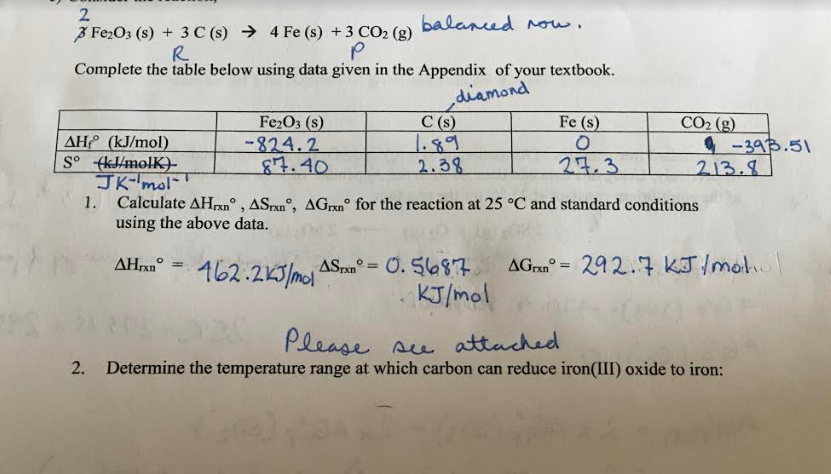 2
3 Fe₂O₃ (s) + 3 C (s) → 4 Fe (s) + 3 CO₂ (g) balanced now.
R P
Complete the table below using data given in the Appendix of your textbook.
diamond
Fe₂O₃ (s) C (s) Fe (s) CO₂ (g)
ΔHf° (kJ/mol) -824.2 1.89 0 -393.51
S° (kJ/molK) 87.40 2.38 27.3 213.8
JK⁻¹mol⁻¹
1. Calculate ΔHrxn° , ΔSrxn°, ΔGrxn° for the reaction at 25 °C and standard conditions
using the above data.
ΔHrxn° = 462.2KJ/mol ΔSrxn° = 0.5687 ΔGrxn° = 292.7 KJ/mol
KJ/mol
Please see attached
2. Determine the temperature range at which carbon can reduce iron(III) oxide to iron: